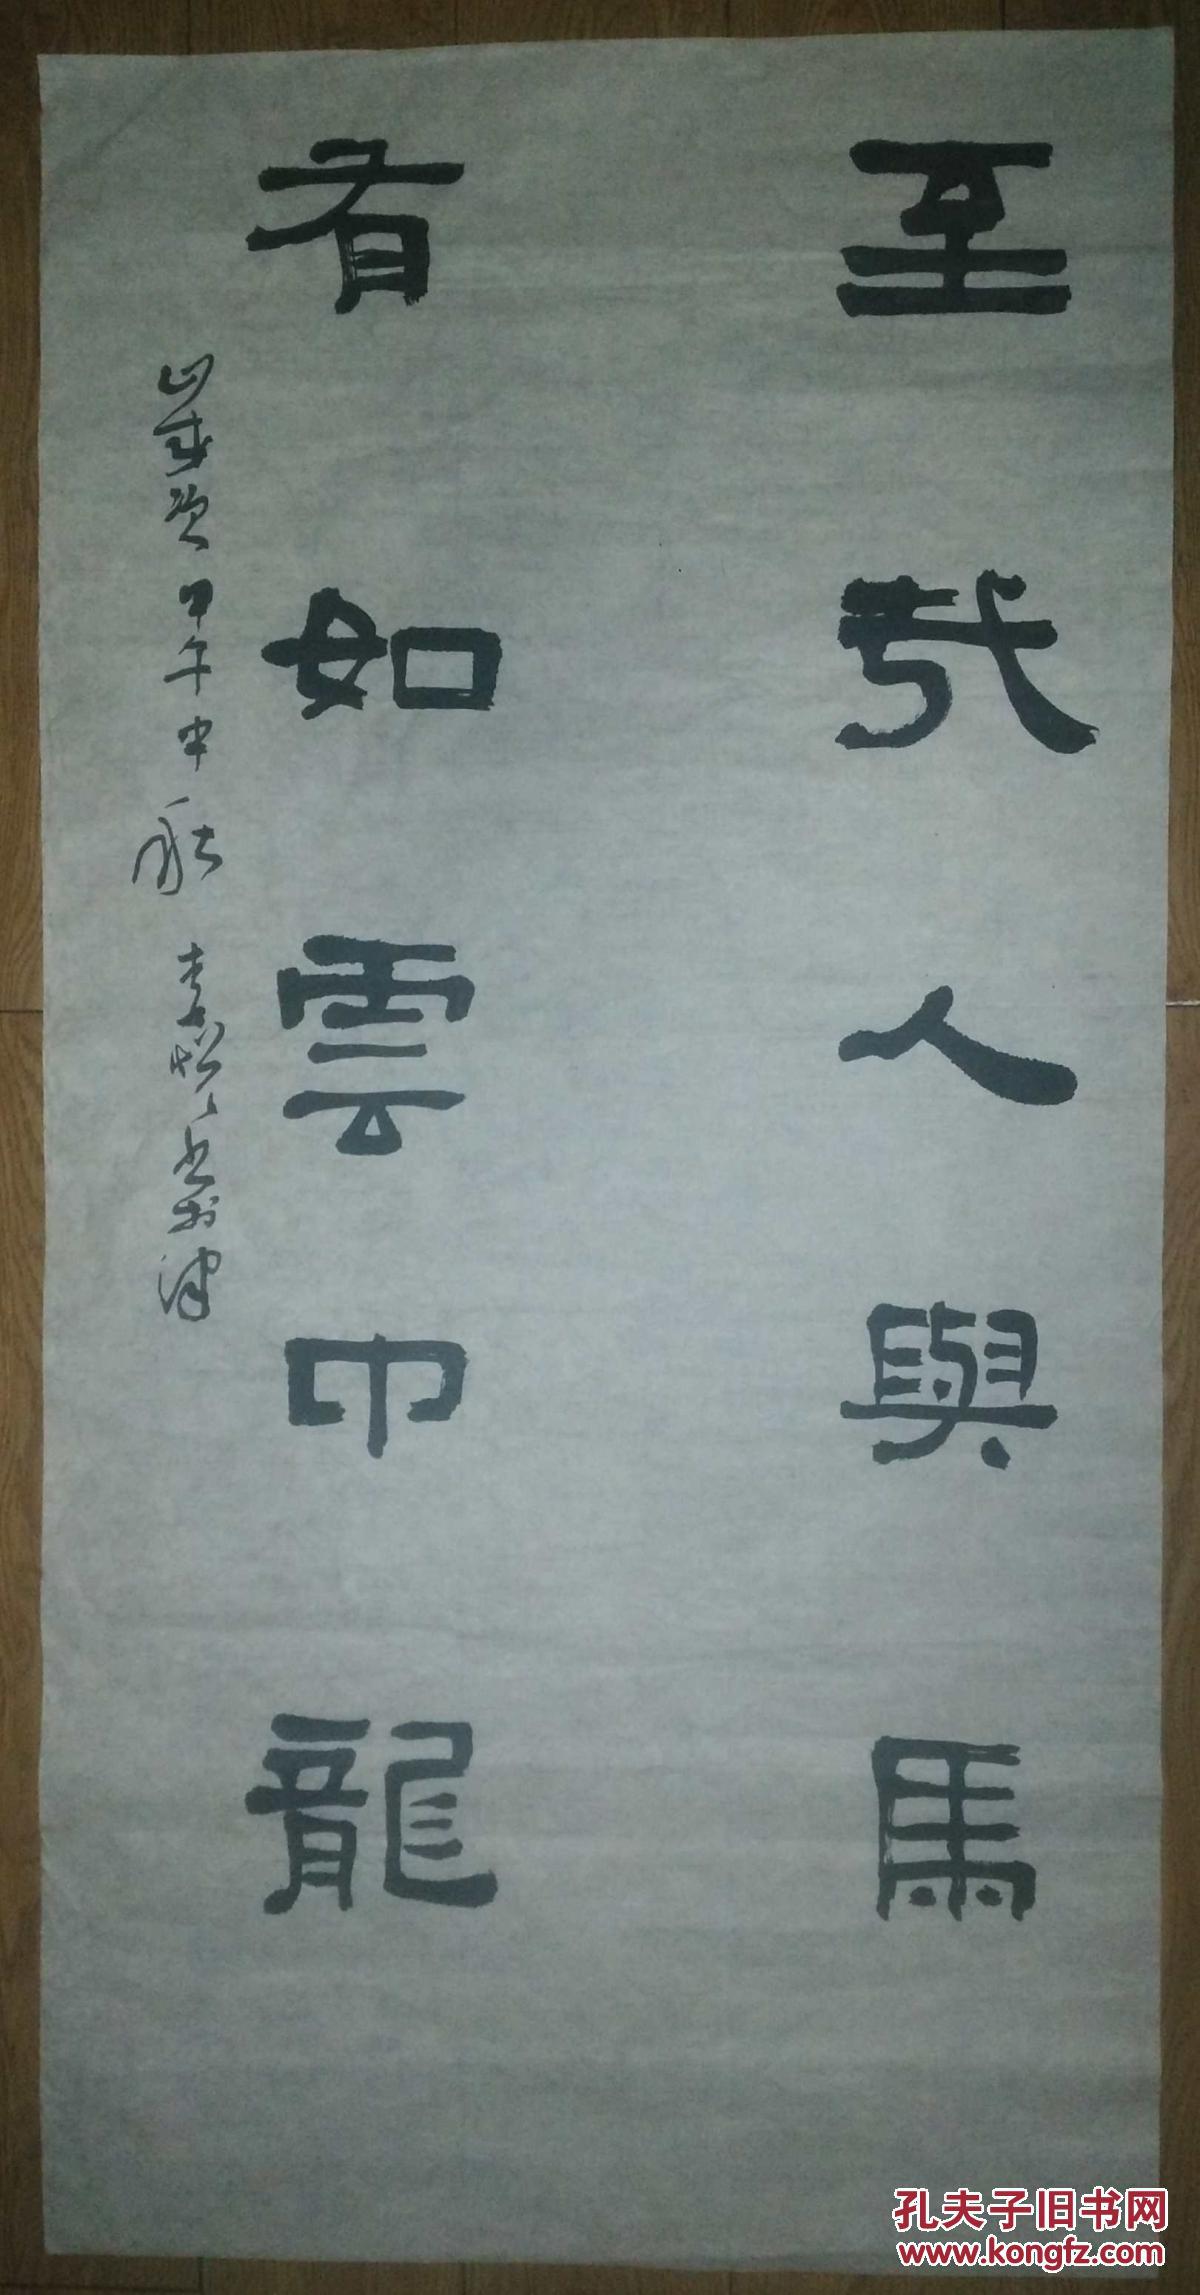 至人與馬
有如雲中龍
歲次甲午中秋 書於津
孔夫子旧书网
www.kongfz.com